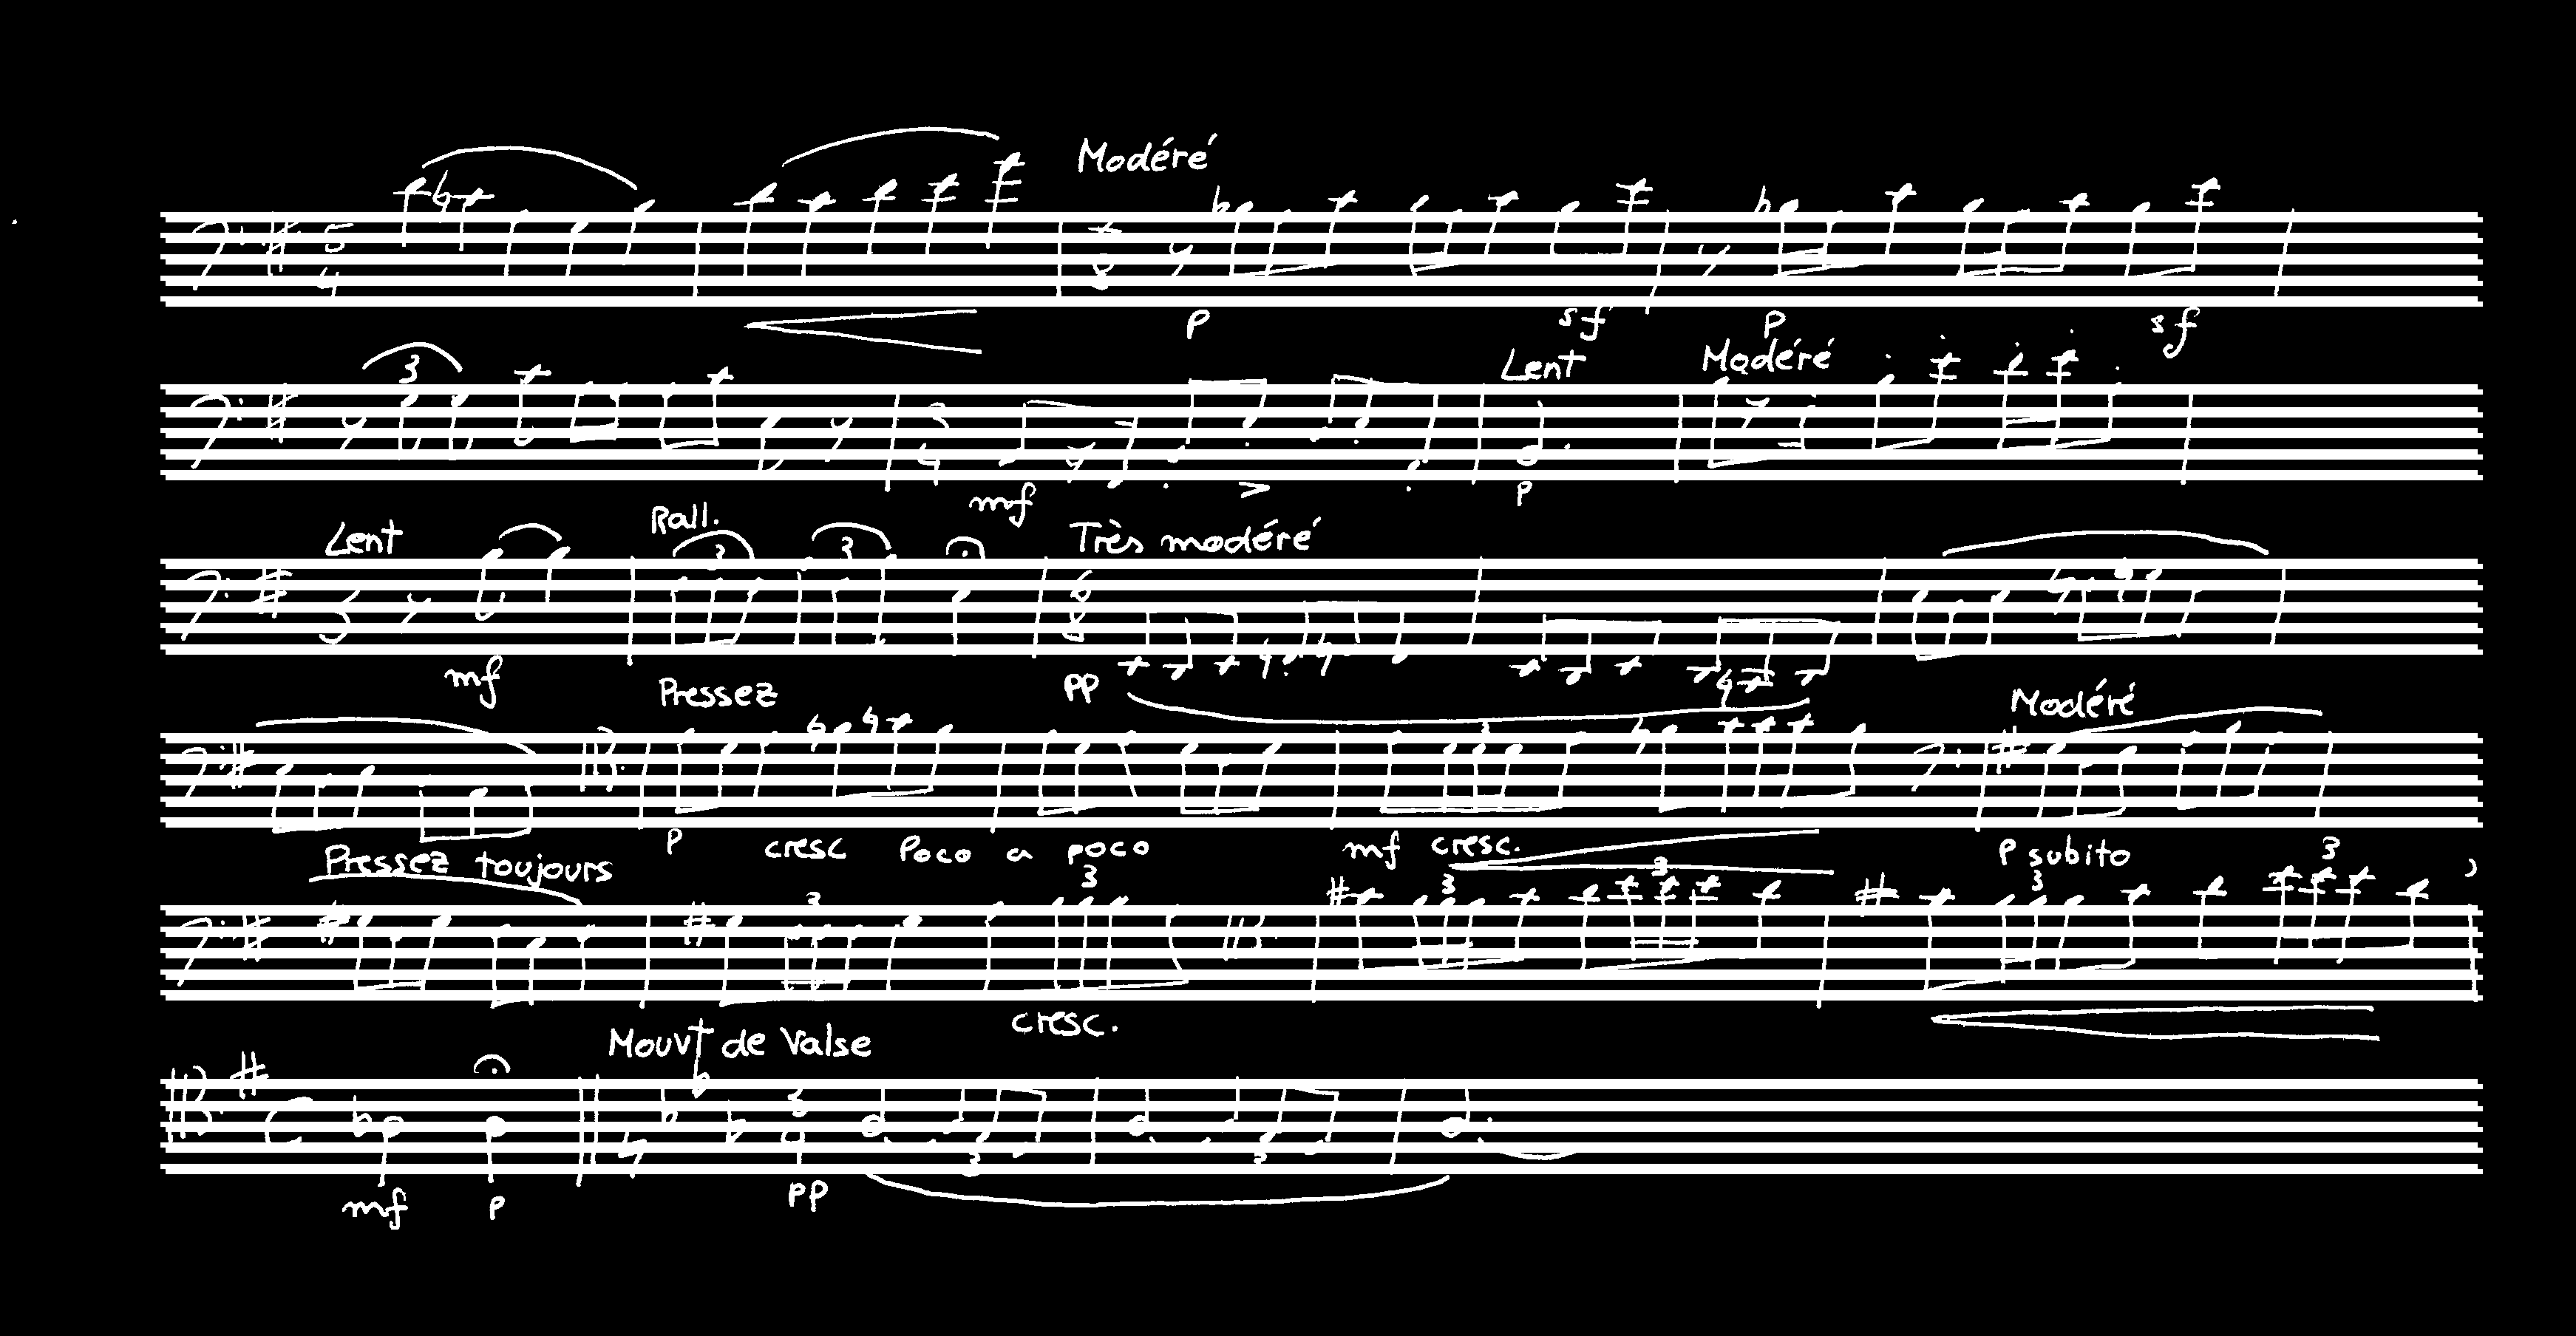 Modéré
5 4
7 8
p sf p sf
Lent Modéré
3
3 4
mf > p
Rall.
Lent 3 3 Très modéré
3
6 8
mf pp
Pressez Modéré
3
p cresc poco a poco mf cresc. p subito
Pressez toujours 3 3 3 3 3 3
cresc.
Mouvt de Valse
C 3 4
3 3
mf p pp